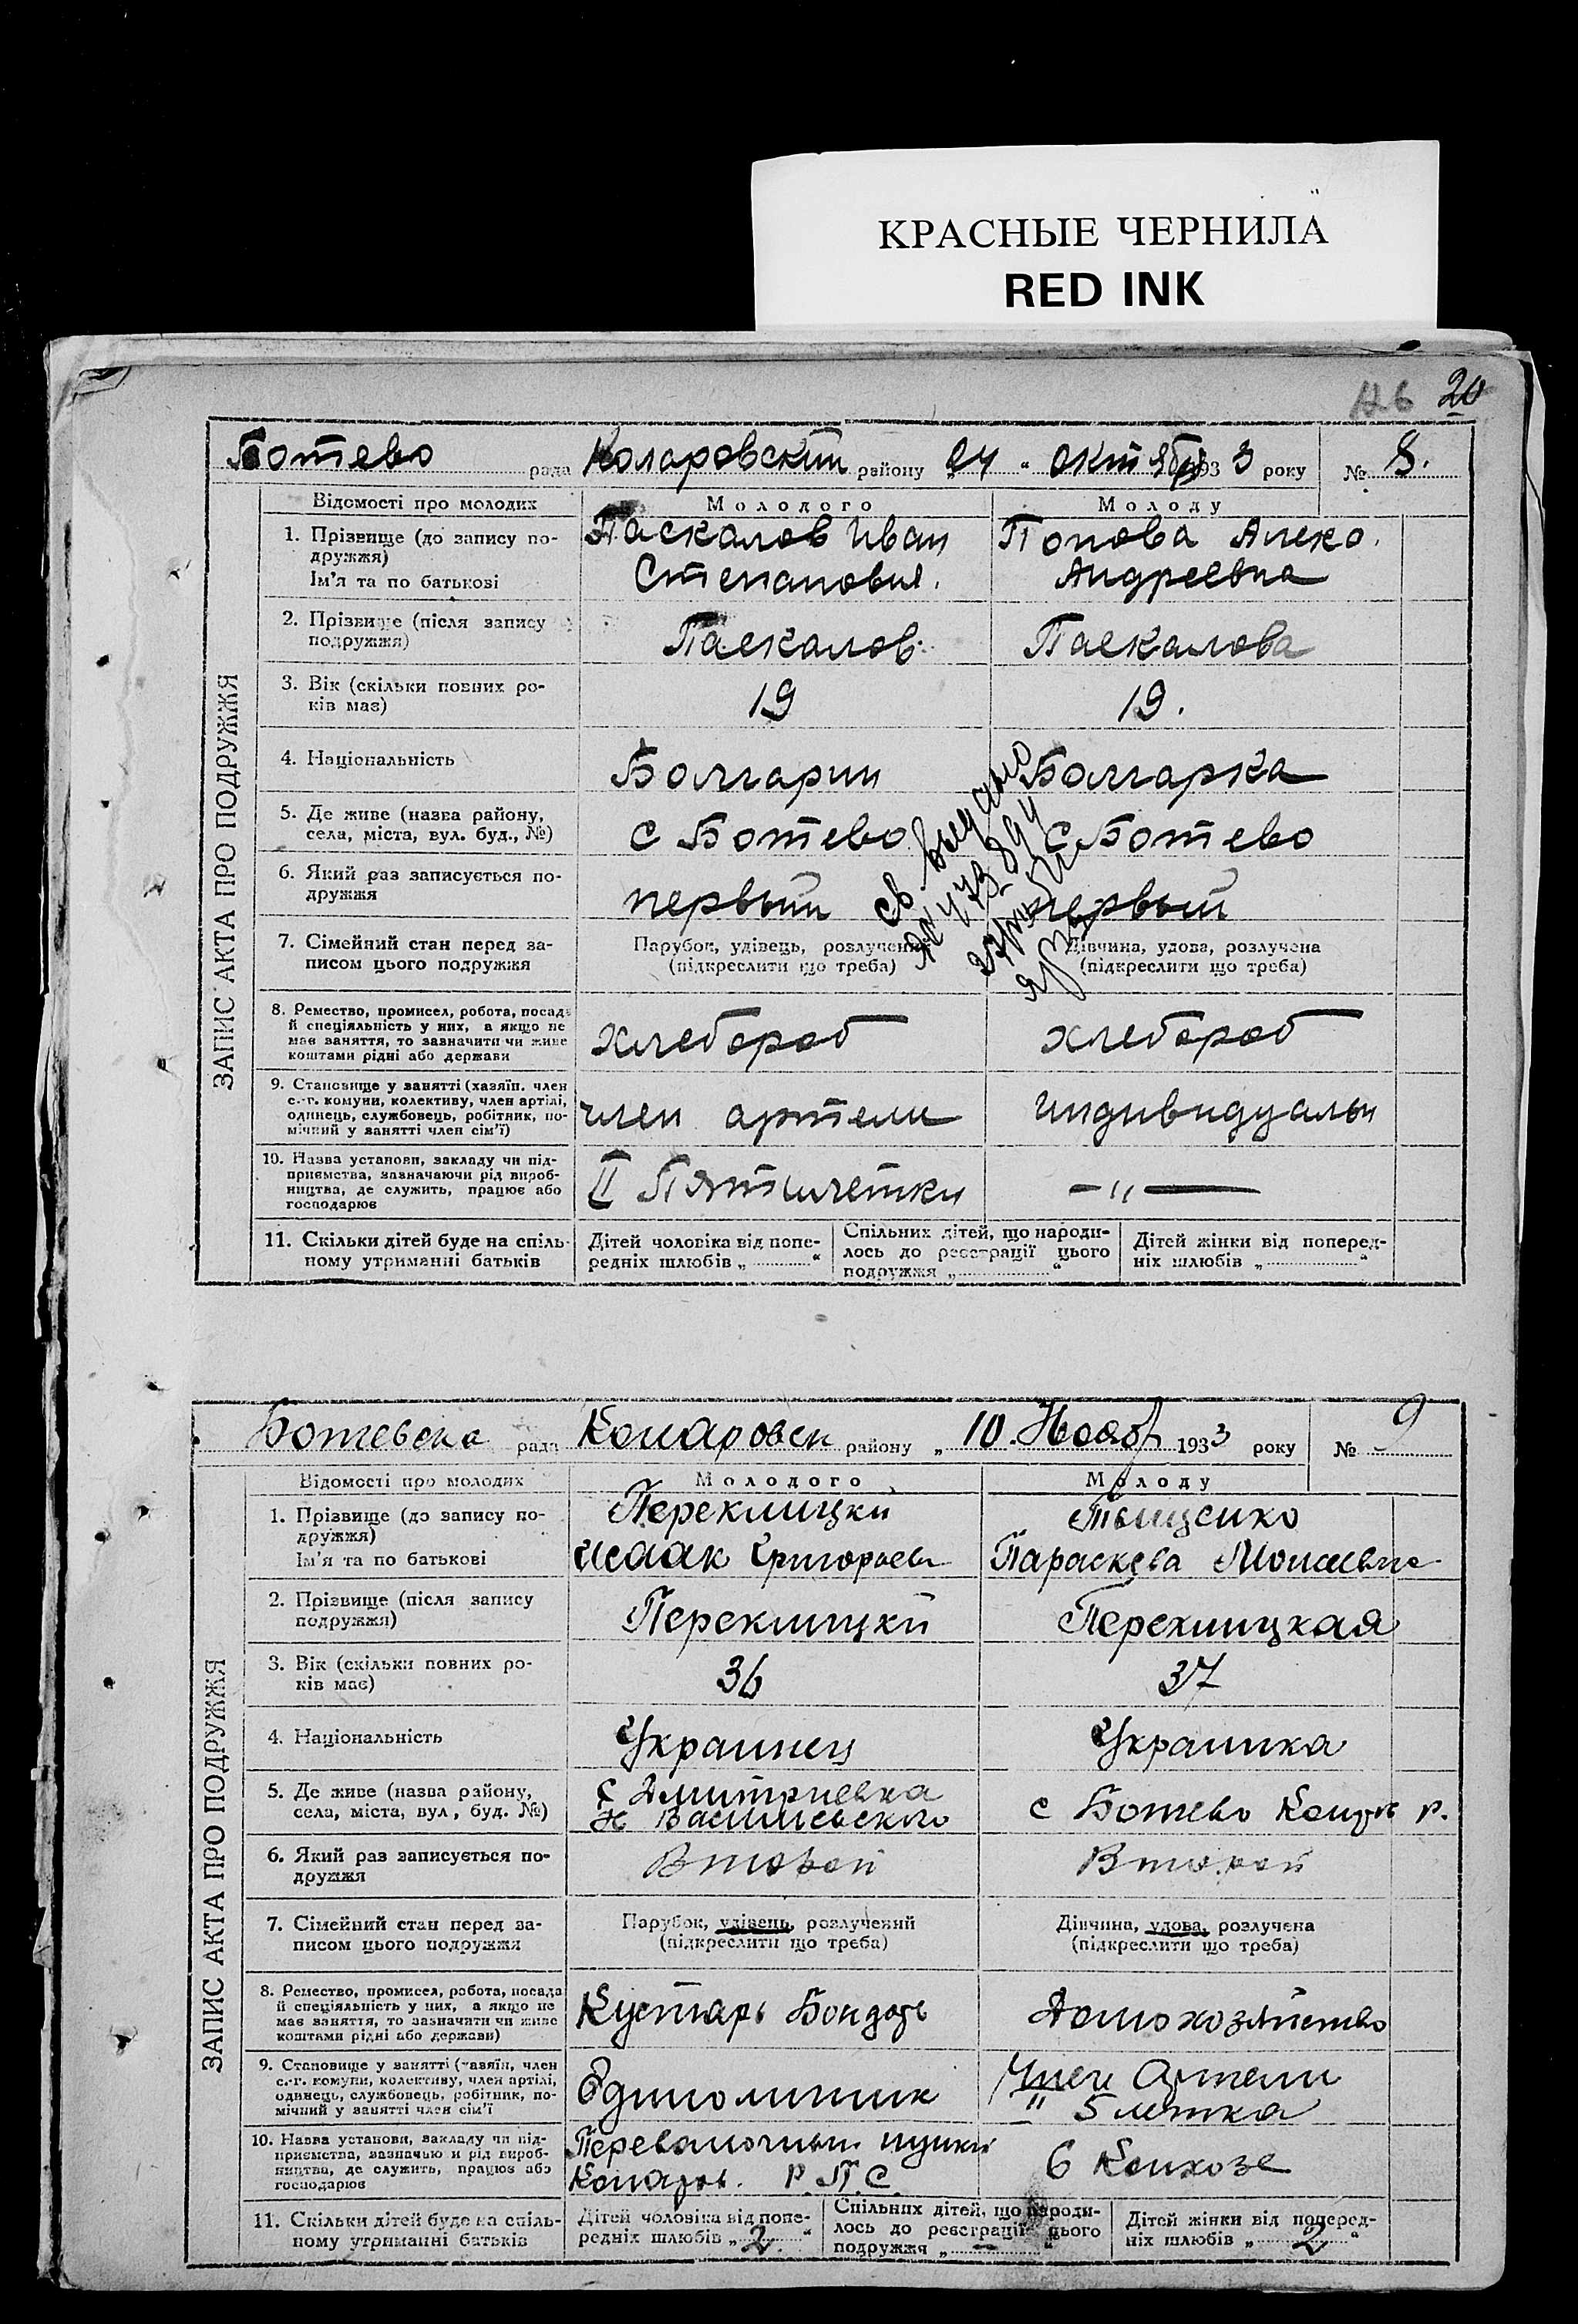 КРАСНЫЕ ЧЕРНИЛА
RED INK
20
Ботево рада Коларовский району 24 " октября 1933 року № 8.
Відомості про молодих Молодого Молоду
1. Прізвище (до запису подружжя) Ім'я та по батькові
Паскалов Иван Степанович.
Попова Алеко. Андреевна
2. Прізвище (після запису подружжя)
Паскалов
Паскалова
3. Вік (скільки повних років має)
19
19.
4. Національність
Болгарин
Болгарка
5. Де живе (назва району, села, міста, вул. буд., №)
с Ботево
с Ботево
6. Який раз записується подружжя
первый
первый
св. выдано
7. Сімейний стан перед записом цього подружжя
Парубок, удівець, розлучений (підкреслити що треба)
Дівчина, удова, розлучена (підкреслити що треба)
8. Ремество, промисел, робота, посада й спеціяльність у них, а якщо не має заняття, то зазначити чи живе коштами рідні або держави
хлебороб
хлебороб
9. Становище у занятті (хазяїн, член с.-г. комуни, колективу, член артілі, одинець, службовець, робітник, помічний у занятті член сім'ї)
член артели
индивидуальн
10. Назва установи, закладу чи підприємства, зазначаючи рід виробництва, де служить, працює або господарює
II Пятилетки
— " —
11. Скільки дітей буде на спільному утриманні батьків
Дітей чоловіка від попередніх шлюбів „ “
Спільних дітей, що народилось до реєстрації цього подружжя „ “
Дітей жінки від попередніх шлюбів „ “
ЗАПИС АКТА ПРО ПОДРУЖЖЯ
Ботевска рада Коларовск району „ 10. Нояб 1933 року № 9
Відомості про молодих Молодого Молоду
1. Прізвище (до запису подружжя) Ім'я та по батькові
Переклицкй Исаак Григорьев
Тыщенко Параскева
2. Прізвище (після запису подружжя)
Переклицкй
Переклицкая
3. Вік (скільки повних років має)
36
37
4. Національність
Украинец
Украинка
5. Де живе (назва району, села, міста, вул, буд. №)
с Дмитриевка Васильевского
с Ботево р.
6. Який раз записується подружжя
Второй
Второй
7. Сімейний стан перед записом цього подружжя
Парубок, удівець, розлучений (підкреслити що треба)
Дівчина, удова, розлучена (підкреслити що треба)
8. Ремество, промисел, робота, посада й спеціяльність у них, а якщо не має заняття, то зазначити чи живе коштами рідні або держави)
Кустарь Бондарь
Домохозяйство
9. Становище у занятті (хазяїн, член с.-г. комуни, колективу, член артілі, одинець, службовець, робітник, помічний у занятті член сім'ї
Одиноличник
Член Артели " 5 летка
10. Назва установи, закладу чи підприємства, зазначаючи рід виробництва, де служить, працює або господарює
Перевалочный пункт Коларов. Р.П.С.
в Колхозе
11. Скільки дітей буде на спільному утриманні батьків
Дітей чоловіка від попередніх шлюбів „ 2. “
Спільних дітей, що народилось до реєстрації цього подружжя „ — “
Дітей жінки від попередніх шлюбів „ 2 “
ЗАПИС АКТА ПРО ПОДРУЖЖЯ